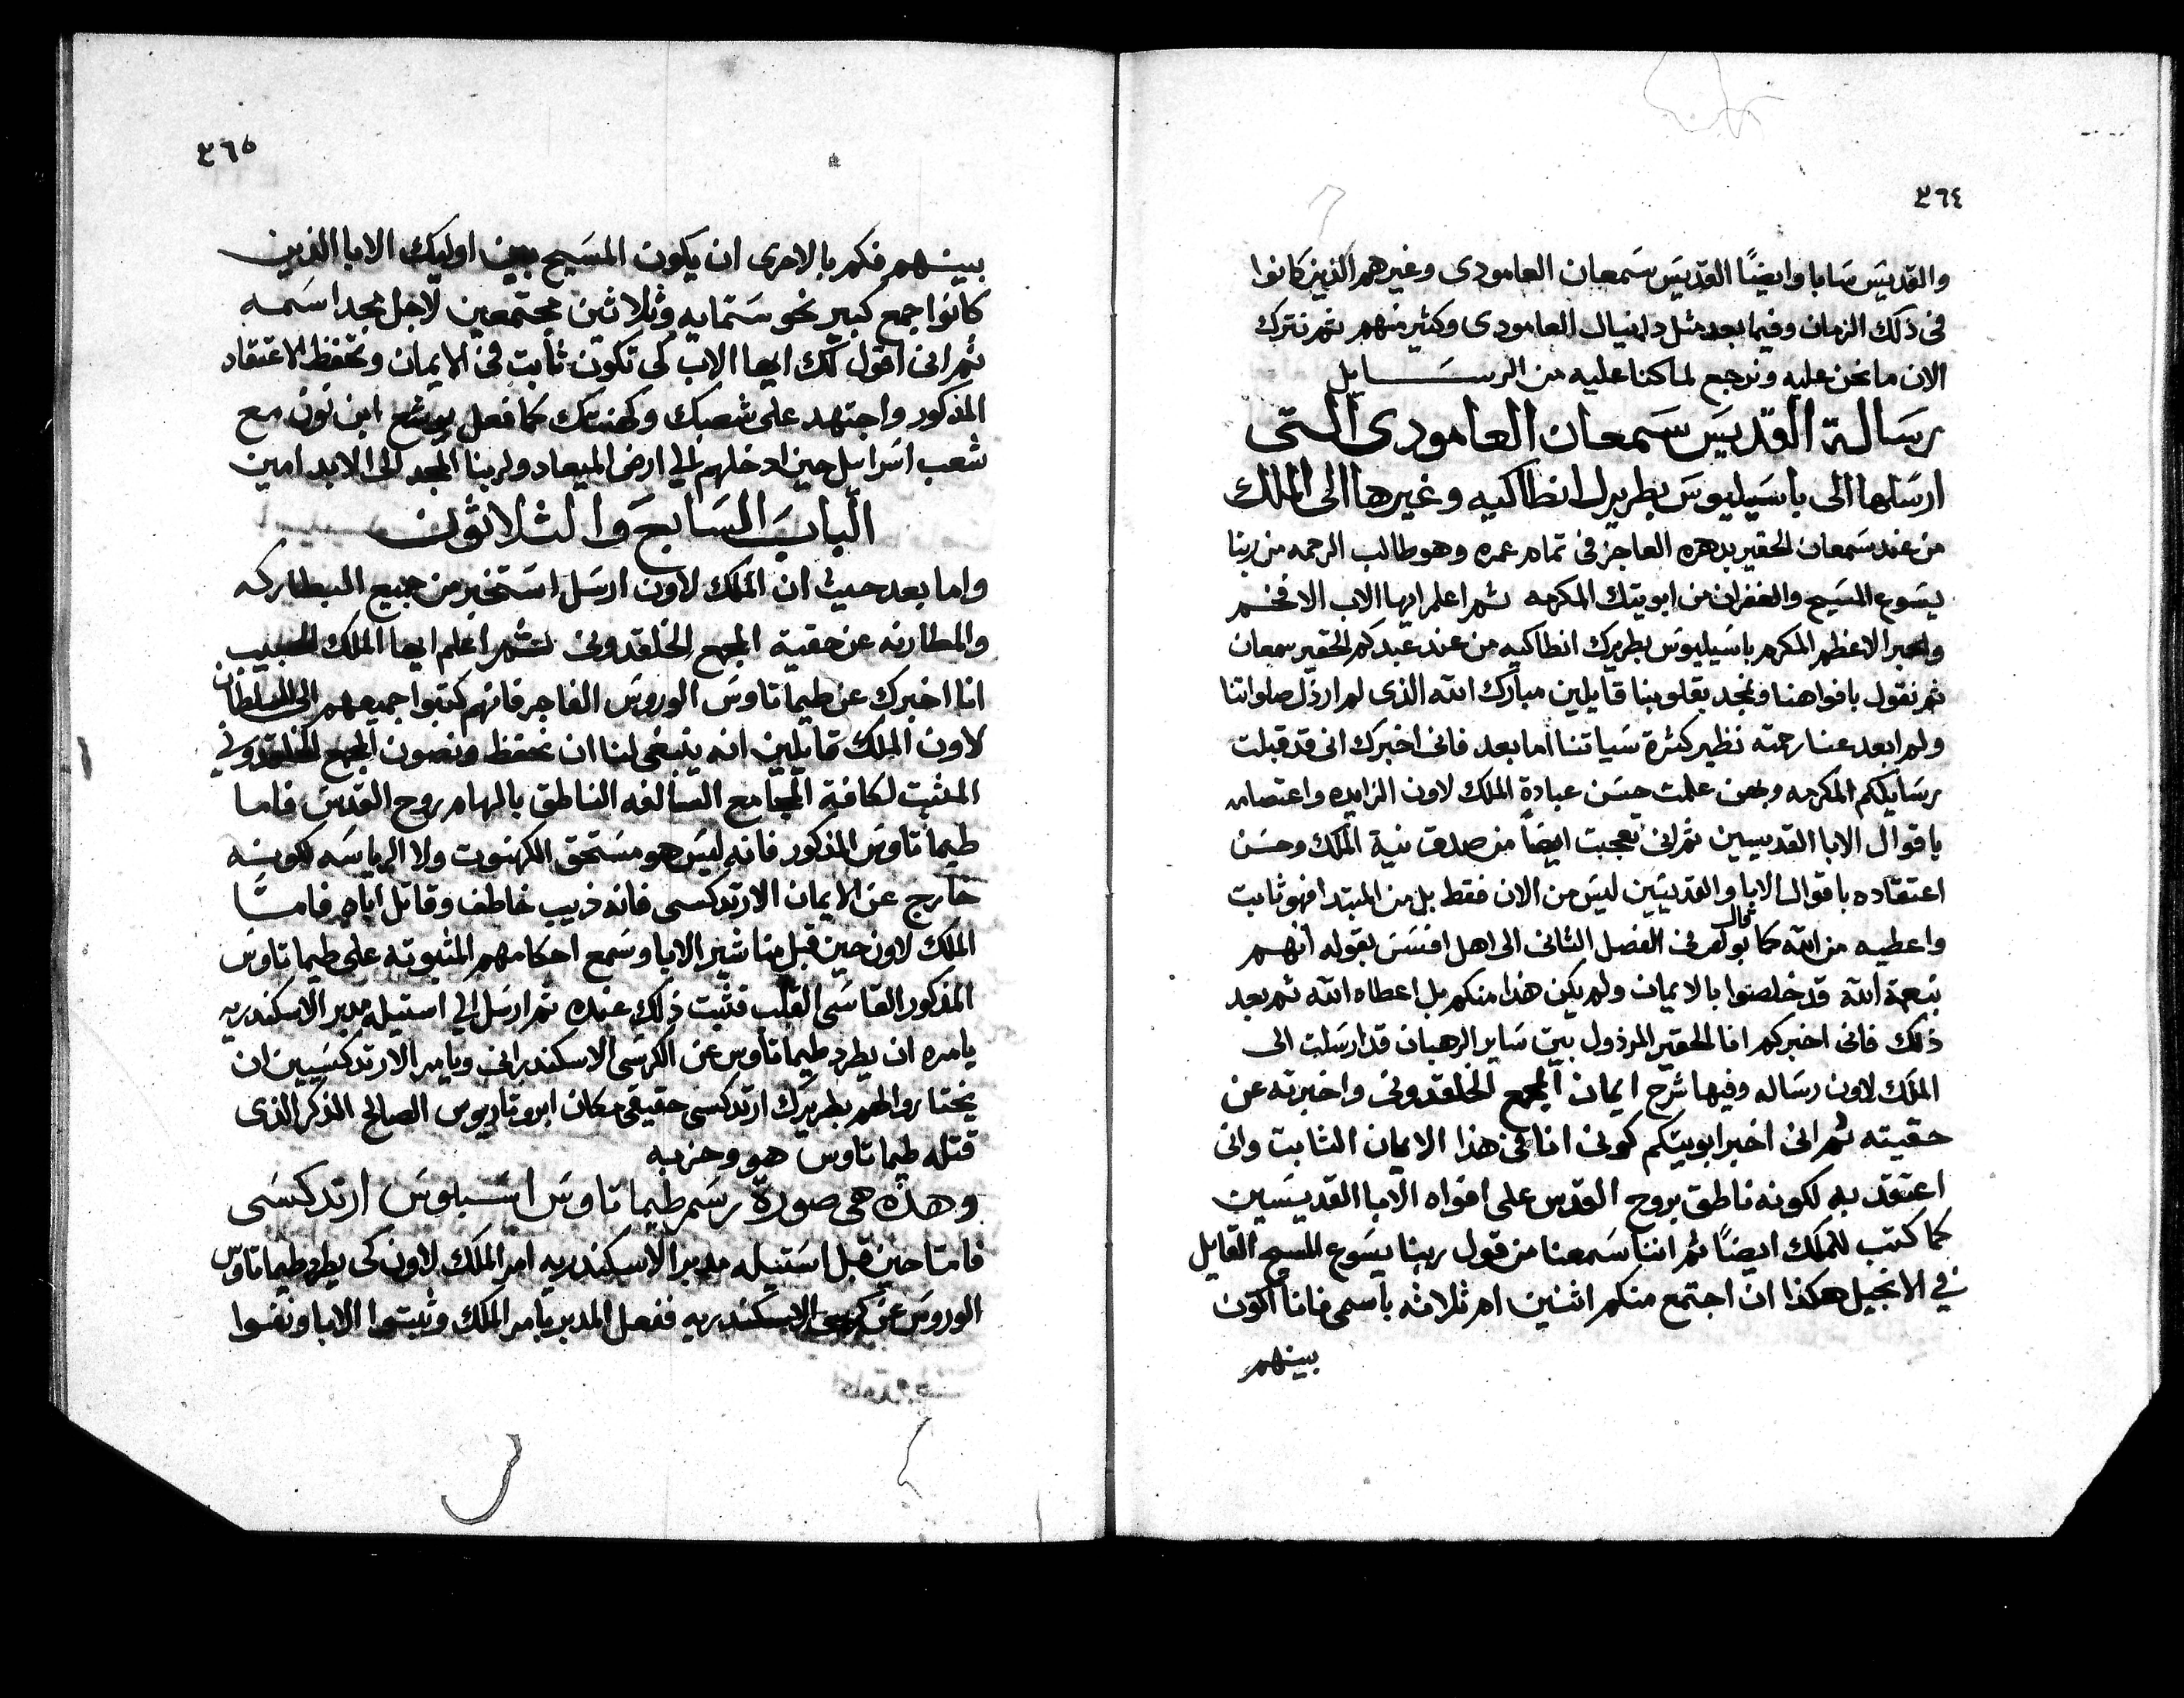 ٣٦٤
والقديس سابا وايضًا القديس سمعان العامودى وغيرهم الذين كانوا
فى ذلك الزمان وفيما بعد مثل دانيال العامودى وكثير منهم ثم نترك
الان ما نحن عليه ونرجع لما كنا عليه من الرسايل
رسالة القديس سمعان العامودى التى
ارسلها الى باسيليوس بطريرك انطاكيه وغيرها الى الملك
من عند سمعان الحقير بدهره العاجز فى تمام عمره وهو طالب الرحمه من ربنا
يسوع المسيح والغفران من ابويتك المكرمه ثم اعلم ايها الاب الافخم
والحبر الاعظم المكرم باسيليوس بطريرك انطاكيه من عند عبدكم الحقير سمعان
ثم نقول بافواهنا ونمجد بقلوبنا قايلين مبارك الله الذى لم ارذل صلواتنا
ولم ابعد عنا رحمته نظير كثرة سياتنا اما بعد فانى اخبرك انى قد قبلت
رسايلكم المكرمه وبهن علمت حسن عبادة الملك لاون الزايده واعتصامه
باقوال الابا القديسين ثم انى تعجبت ايضاً من صدق نية الملك وحسن
اعتقاده باقوال الابا والقديسين ليس من الان فقط بل من المبتدا فهو ثابت
واعطيه من الله كما قال بولص فى الفصل الثانى الى اهل افسس بقوله انهم
بنعمة الله قد خلصوا بالايمان ولم يكن هذا منكم بل اعطاه الله ثم بعد
ذلك فانى اخبركم انا الحقير المرذول بين ساير الرهبان قد ارسلت الى
الملك لاون رساله وفيها شرح ايمان المجمع الخلقدونى واخبرته عن
حقيته ثم انى اخبر ابويتكم كونى انا فى هذا الايمان الثابت وانى
اعتقد به لكونه ناطق بروح القدس على افواه الابا القديسين
كما كتب للملك ايضًا ثم اننا سمعنا من قول ربنا يسوع المسيح القايل
في الانجيل هكذا ان اجتمع منكم اثنين ام ثلاثه باسمى فانا اكون
بينهم
٣٦٥
بينهم فكم بالاحرى ان يكون المسيح بين اوليك الابا الذين
كانوا جمع كبير نحو ستمايه وثلاثين مجتمعين لاجل مجد اسمه
ثم انى اقول لك ايها الاب كى تكون ثابت فى الايمان وتحفظ الاعتقاد
المذكور واجتهد على شعبك وكهنتك كما فعل يوشع ابن نون مع
شعب اسرايل حين ادخلهم الي ارض الميعاد ولربنا المجد الى الابد امين
الباب السابع والثلاثون
واما بعد حيث ان الملك لاون ارسل استخبر من جميع البطاركه
والمطارنه عن حقية المجمع الخلقدونى ثم اعلم ايها الملك الحبيب
انا اخبرك عن طيماتاوس الوروس الفاجر فانهم كتبوا جميعهم الى السلطان
لاون الملك قايلين انه ينبغى لنا ان نحفظ ونصون المجمع الخلقدوني
المثبت لكافة المجامع السالفه الناطق بالهام روح القدس فاما
طيماتاوس المذكور فانه ليس هو مستحق الكهنوت ولا الرياسه لكونه
خارج عن الايمان الارتدكسى فانه ذيب خاطف وقاتل اباه فامّا
الملك لاون حين قبل مناشير الابا وسمع احكامهم المثبوته على طيماتاوس
المذكور القاسى القلب فثبت ذلك عنده ثم ارسل الي استيله مدبر الاسكندريه
يامره ان يطرد طيماتاوس عن الكرسى الاسكندرانى ويامر الارتدكسيين ان
يختاروا لهم بطريرك ارتدكسى حقيقى مكان ابروتاريوس الصالح الذكر الذى
قتله طيماتاوس هو وحزبه
وهذه هى صورة رسم طيماتاوس اسبلوس ارتدكسى
فامّا حين قبل استيله مدبر الاسكندريه امر الملك لاون كى يطرد طيماتاوس
الوروس عن كرسى الاسكندريه ففعل المدبر بامر الملك وثبتوا الابا ونفوا